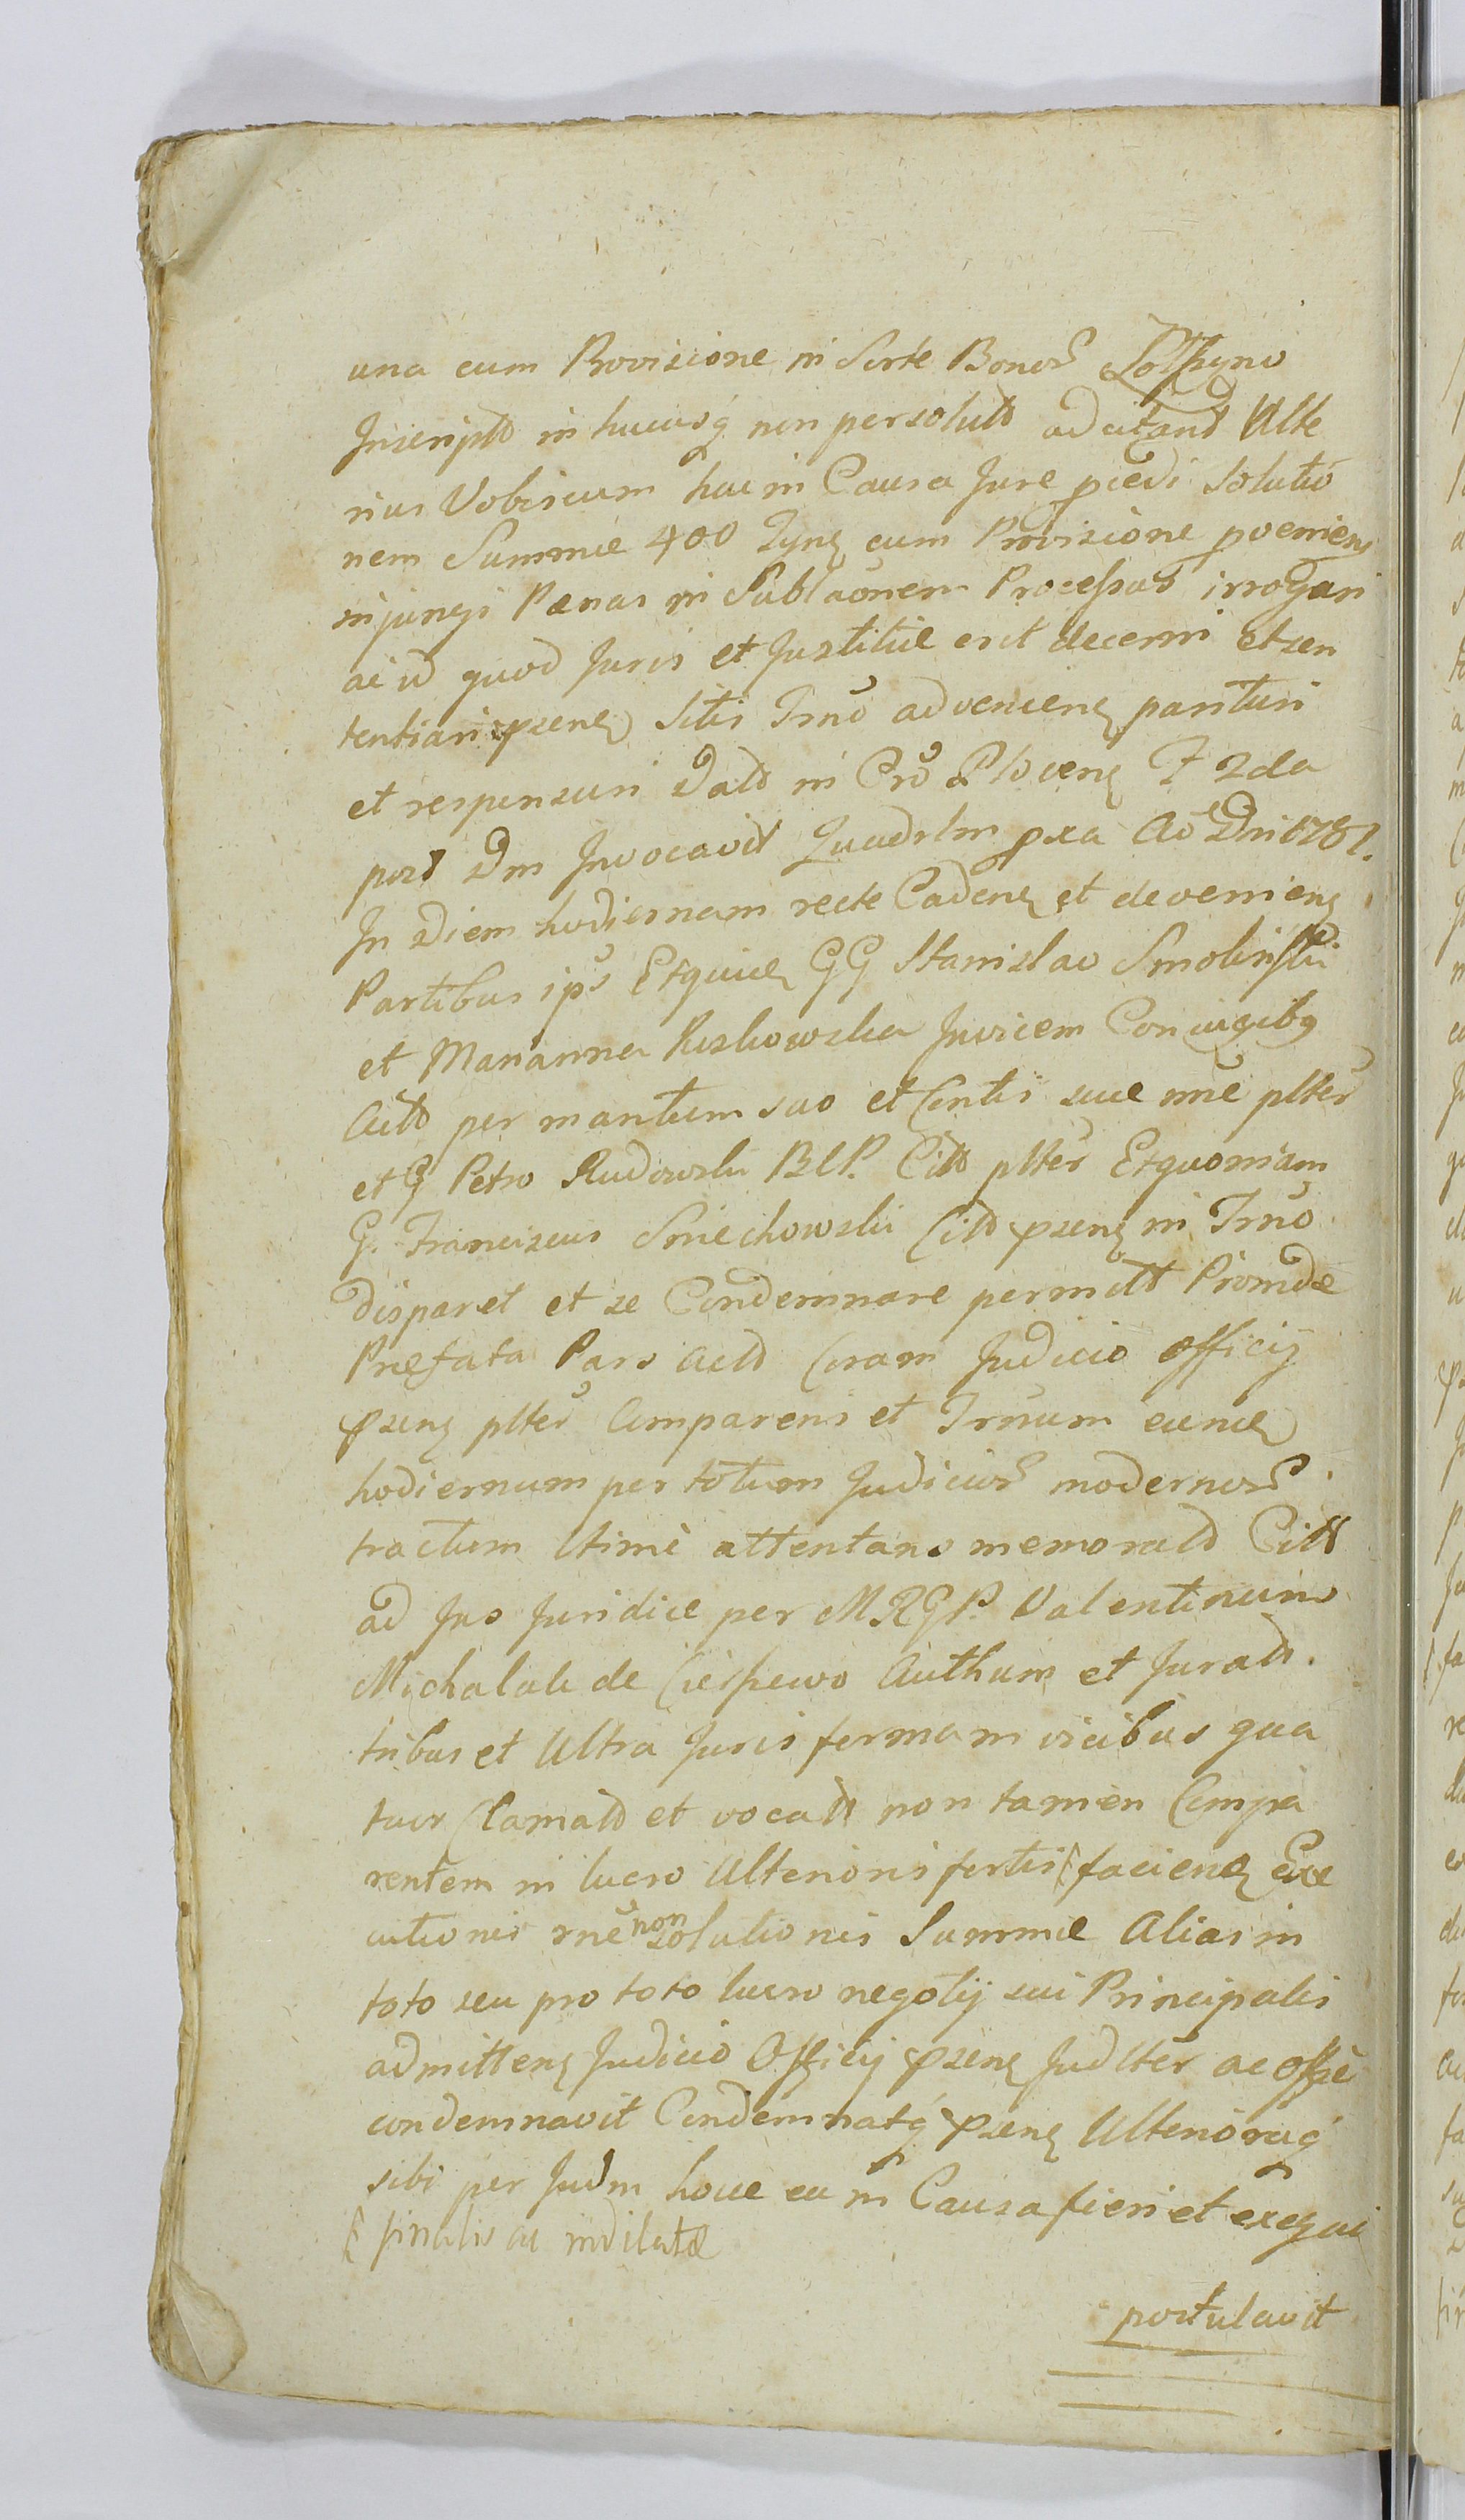 una cum Provisione in Sorte Bonor
Inscriptd in hucusq́ non persolutd ad citand Ulte
rius Vobiscum hac in Causa Jure pcedi Solutio
nem Summæ 400 Tynf cum Provisione pveniens
injungi Pœnas in Sublaonem Processus irrogari
ac id quod Juris et Justitiæ erit decerni et sen
tentiari psens Sitis Trno advenienes parituri
et responsuri Datt in Cro Plocens F 2da
post Dm Invocavit Quadrlm pxa Ao Dni 1781.
In Diem hodiernam recte Cadens et deveniens
Partibus ips Exquius GG Stanislao Smolinski
et Marianna Ruszkowska Invicem Conjugibq
Actd per maritum suo et Contis suæ nne plter
et G Petro Rudowski BCP. Citt plter Exquoniam
G. Franciscus Smiechowski Citt psens in Trno
disparet et se Condemnare permitt Proinde
Præfata Pars Actd Coram Judicio Officij
psens plter Comparens et Trnum eunde
hodiernum per totum Judicior modernor
tractum ltime attentans memoratd Citt
ad Jus Juridice per MRGP. Valentinum
Michalak de Authum et Juratt.
tribus et Ultra Juris formam vicibus qua
tuor Clamatd et vocatt non tamen Compa
rentem in lucro Ulterioris fortis faciens Exe
cutionis rne non solutionis Summæ Alias in
toto seu pro toto lucro negotij sui Principalis
admittens Judicio Officij psens Judlter ac offse
condemnavit Condemnatq́ psens Ulterioraq́
sibi per Judm hocce ea in Causa fieri et exequi
finalis ac indilatæ
postulavit